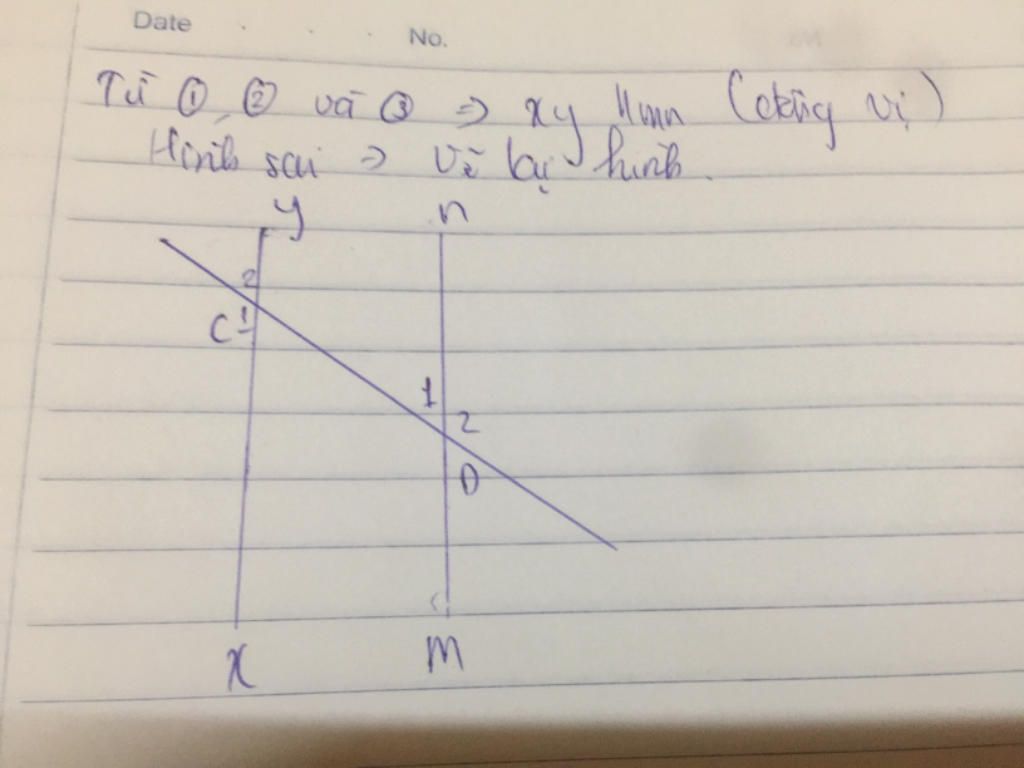 Date No.
Từ ①, ② và ③ => xy // mn (đồng vị)
Hình sai => vẽ lại hình.
y n
2
C 1
1
2
D
x m